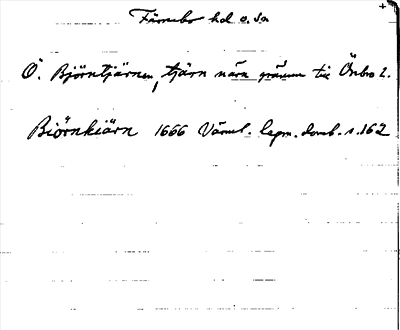 Färnebo hd o. sn
Ö. Björntjärnen, tjärn nära gränsen till Örebro l.
Biörnkiärn 1666 Värml. lapm. domb. s. 162